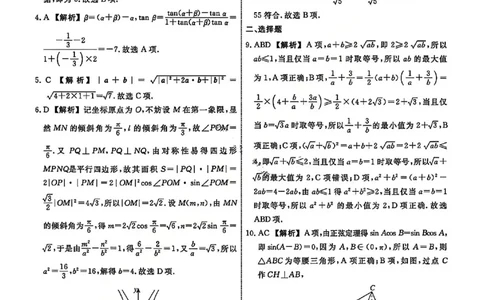 4. A 【解析】β=(α+β)-α, tan β= \frac{tan(α+β)-tan α}{1+tan(α+β)tan α} =
\frac{-\frac{1}{3}-2}{1+(-\frac{1}{3})×2} =-7. 故选 A 项.
5. C 【解析】|a+b|= \sqrt{|a|²+2a·b+|b|²} =
\sqrt{4+2×1+1}=\sqrt{7}. 故选 C 项.
6. D 【解析】记坐标原点为 O, 不妨设 M 在第一象限, 显
然 MN 的倾斜角为 \frac{π}{6}, l 的倾斜角为 \frac{π}{3}, 故∠POM=
\frac{π}{6}. 又 PQ⊥PM, PQ⊥NQ, 由对称性易得四边形
MPNQ是平行四边形, 故其面积 S=|PQ|·|PM|=
2|OP|·|PM|=2|OM|²cos∠POM·sin∠POM=
\frac{\sqrt{3}}{2}|OM|²=4\sqrt{3}, 所以|OM|=2\sqrt{2}. 设 M(m,n), 由 MN
的倾斜角为 \frac{π}{6}, 得 m=2\sqrt{2}cos \frac{π}{6}=\sqrt{6}, n=2\sqrt{2}sin \frac{π}{6}=
\sqrt{2}, 于是由 \frac{m²}{a²}-\frac{n²}{b²}=1, 得 \frac{6}{a²}-\frac{2}{b²}=1, 又 \frac{b}{a}=\sqrt{3}, 所以
a²=\frac{16}{3}, b²=16, 解得 b=4. 故选 D 项.
55 符合. 故选 B 项.
二、选择题
9. ABD 【解析】A 项, a+b≥2\sqrt{ab}, 即 2≥2\sqrt{ab}, 所以
ab≤1, 当且仅当 a=b=1 时取等号, 所以 ab 的最大值
为 1, A 项正确; B 项, \frac{1}{a}+\frac{3}{b}=\frac{1}{2}(a+b)(\frac{1}{a}+\frac{3}{b})=
\frac{1}{2}×(4+\frac{b}{a}+\frac{3a}{b})≥\frac{1}{2}×(4+2\sqrt{3})=2+\sqrt{3}, 当且仅
当 b=\sqrt{3}a 时取等号, 所以 \frac{1}{a}+\frac{3}{b} 的最小值为 2+\sqrt{3}, B
项正确; C 项, (\sqrt{a}+\sqrt{b})²=a+b+2\sqrt{ab}=2+2\sqrt{ab}≤
4, 即\sqrt{a}+\sqrt{b}≤2, 当且仅当 a=b=1 时取等号, 所以\sqrt{a}+
\sqrt{b}的最大值为 2, C 项错误; D 项, a²+b²=(a+b)²-
2ab=4-2ab, 由 ab≤1 得 a²+b²≥2, 当且仅当 a=b=1
时取等号, 所以 a²+b² 的最小值为 2, D 项正确. 故选
ABD 项.
10. AC 【解析】A 项, 由正弦定理得 sin Acos B=sin Bcos A,
即 sin(A-B)=0, 因为 A, B∈(0,π), 所以 A=B, 则
△ABC 为等腰三角形, A 项正确; B 项, 如图, 过点 C
作 CH⊥AB,
C